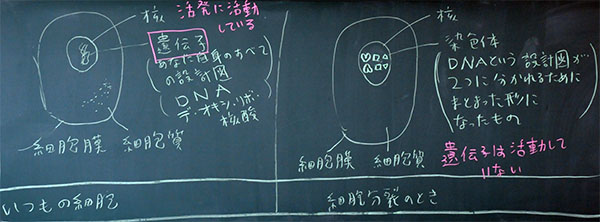 核
活発に活動
している
遺伝子
あなた自身のすべて
の設計図
DNA
デオキシリボ
核酸
細胞膜
細胞質
いつもの細胞
核
染色体
DNAという設計図が
2つに分かれるために
まとまった形に
なったもの
細胞膜
細胞質
遺伝子は活動して
いない
細胞分裂のとき